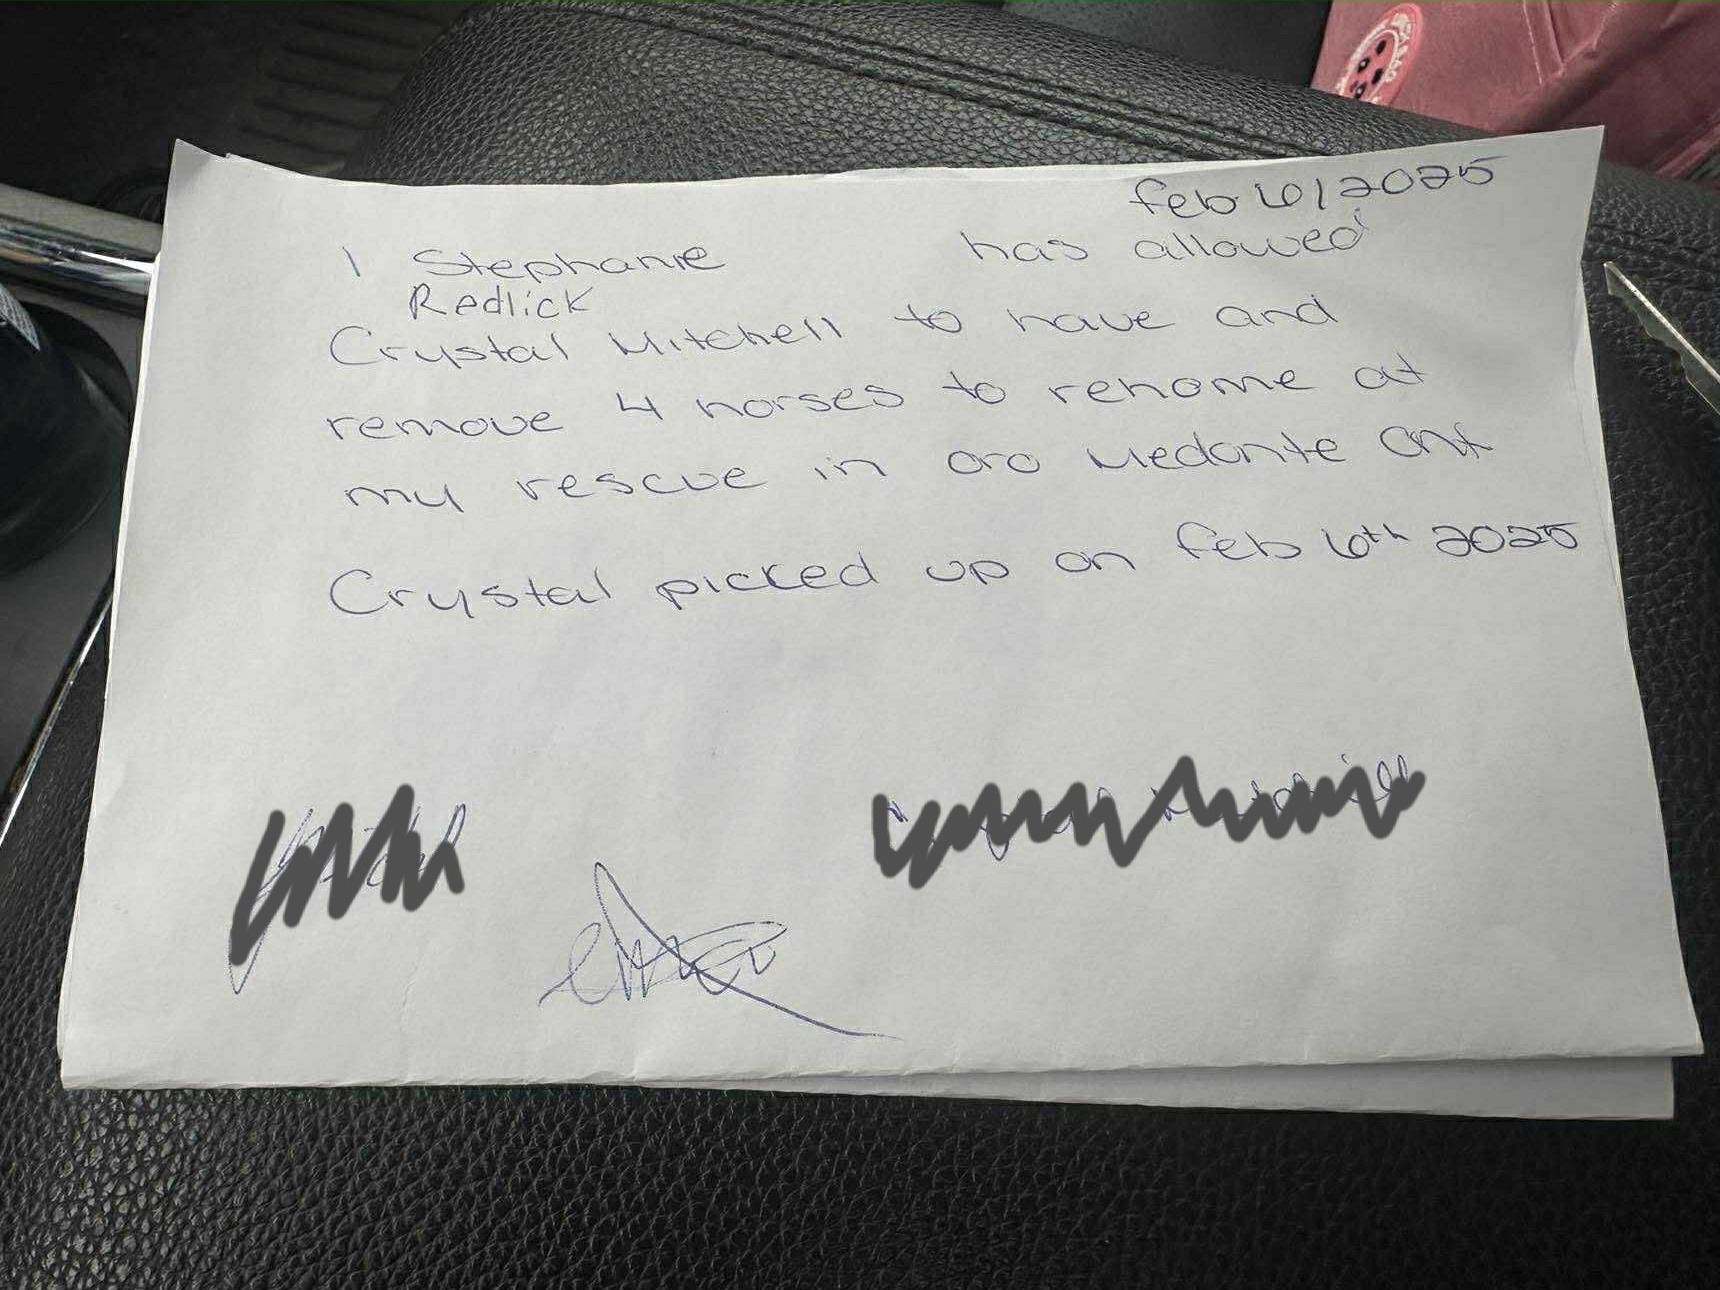 Feb 6/2025
I Stephanie has allowed
Redlick
Crystal Mitchell to have and
remove 4 horses to rehome at
my rescue in oro Medonte Ont
Crystal picked up on Feb 6th 2025